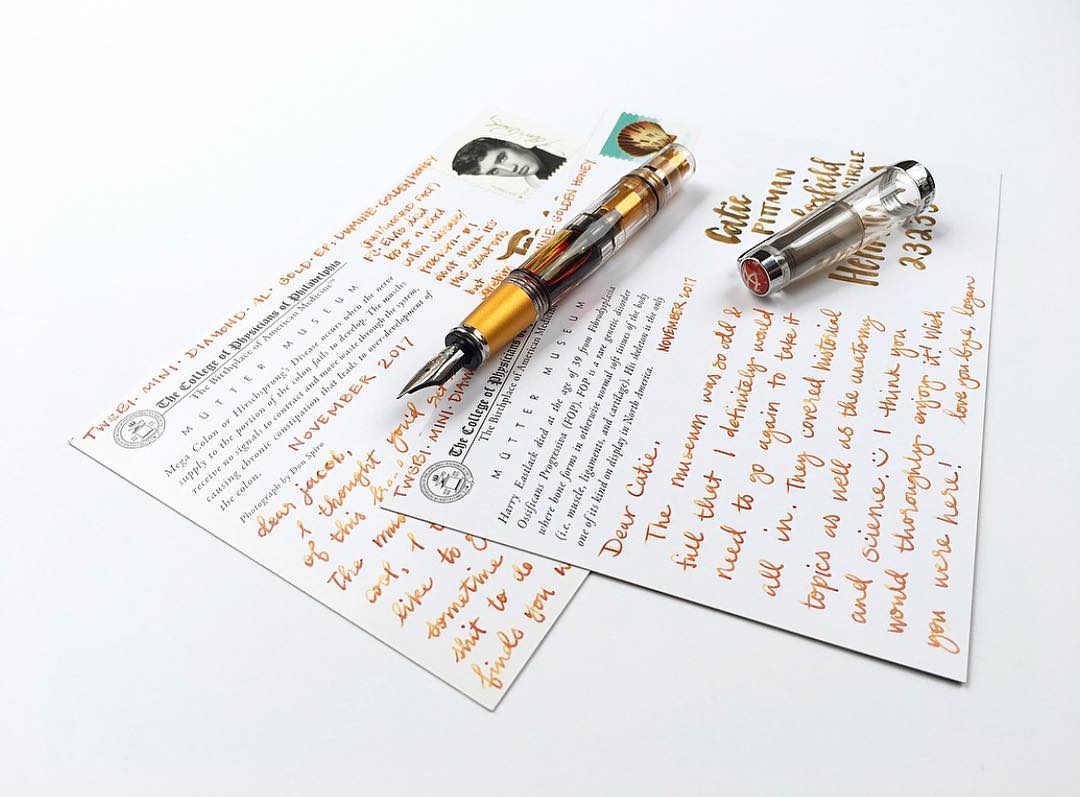 TWSBI · MINI · DIAMOND · AL · GOLD · EF : DIAMINE · GOLDEN HONEY
The College of Physicians of Philadelphia
The Birthplace of American Medicine™
MÜTTER MUSEUM
Mega Colon or Hirschsprung's Disease occurs when the nerve
supply to the portion of the colon fails to develop. The muscles
receive no signals to contract and move waste through the system,
causing chronic constipation that leads to over-development of
the colon.
Photograph by Don Spiro
NOVEMBER 2017
dear jacob,
I thought
of this
The
cool, I
like to
sometime
shit to do
finds you
P.S. Elvis died
TWSBI · MINI · DIAM
INE · GOLDEN HONEY
The College of Physicians
The Birthplace of American Medicine
MÜTTER MUSEUM
Harry Eastlack died at the age of 39 from Fibrodysplasia
Ossificans Progressiva (FOP). FOP is a rare genetic disorder
where bone forms in otherwise normal soft tissues of the body
(i.e. muscle, ligaments, and cartilage). His skeleton is the only
one of its kind on display in North America.
NOVEMBER 2017
Dear Catie,
The museum was so odd &
full that I definitely would
need to go again to take it
all in. They covered historical
topics as well as the anatomy
and science. I think you
would thoroughly enjoy it! Wish
you were here!
love you bye, logan
Catie
PITTMAN
CIRCLE